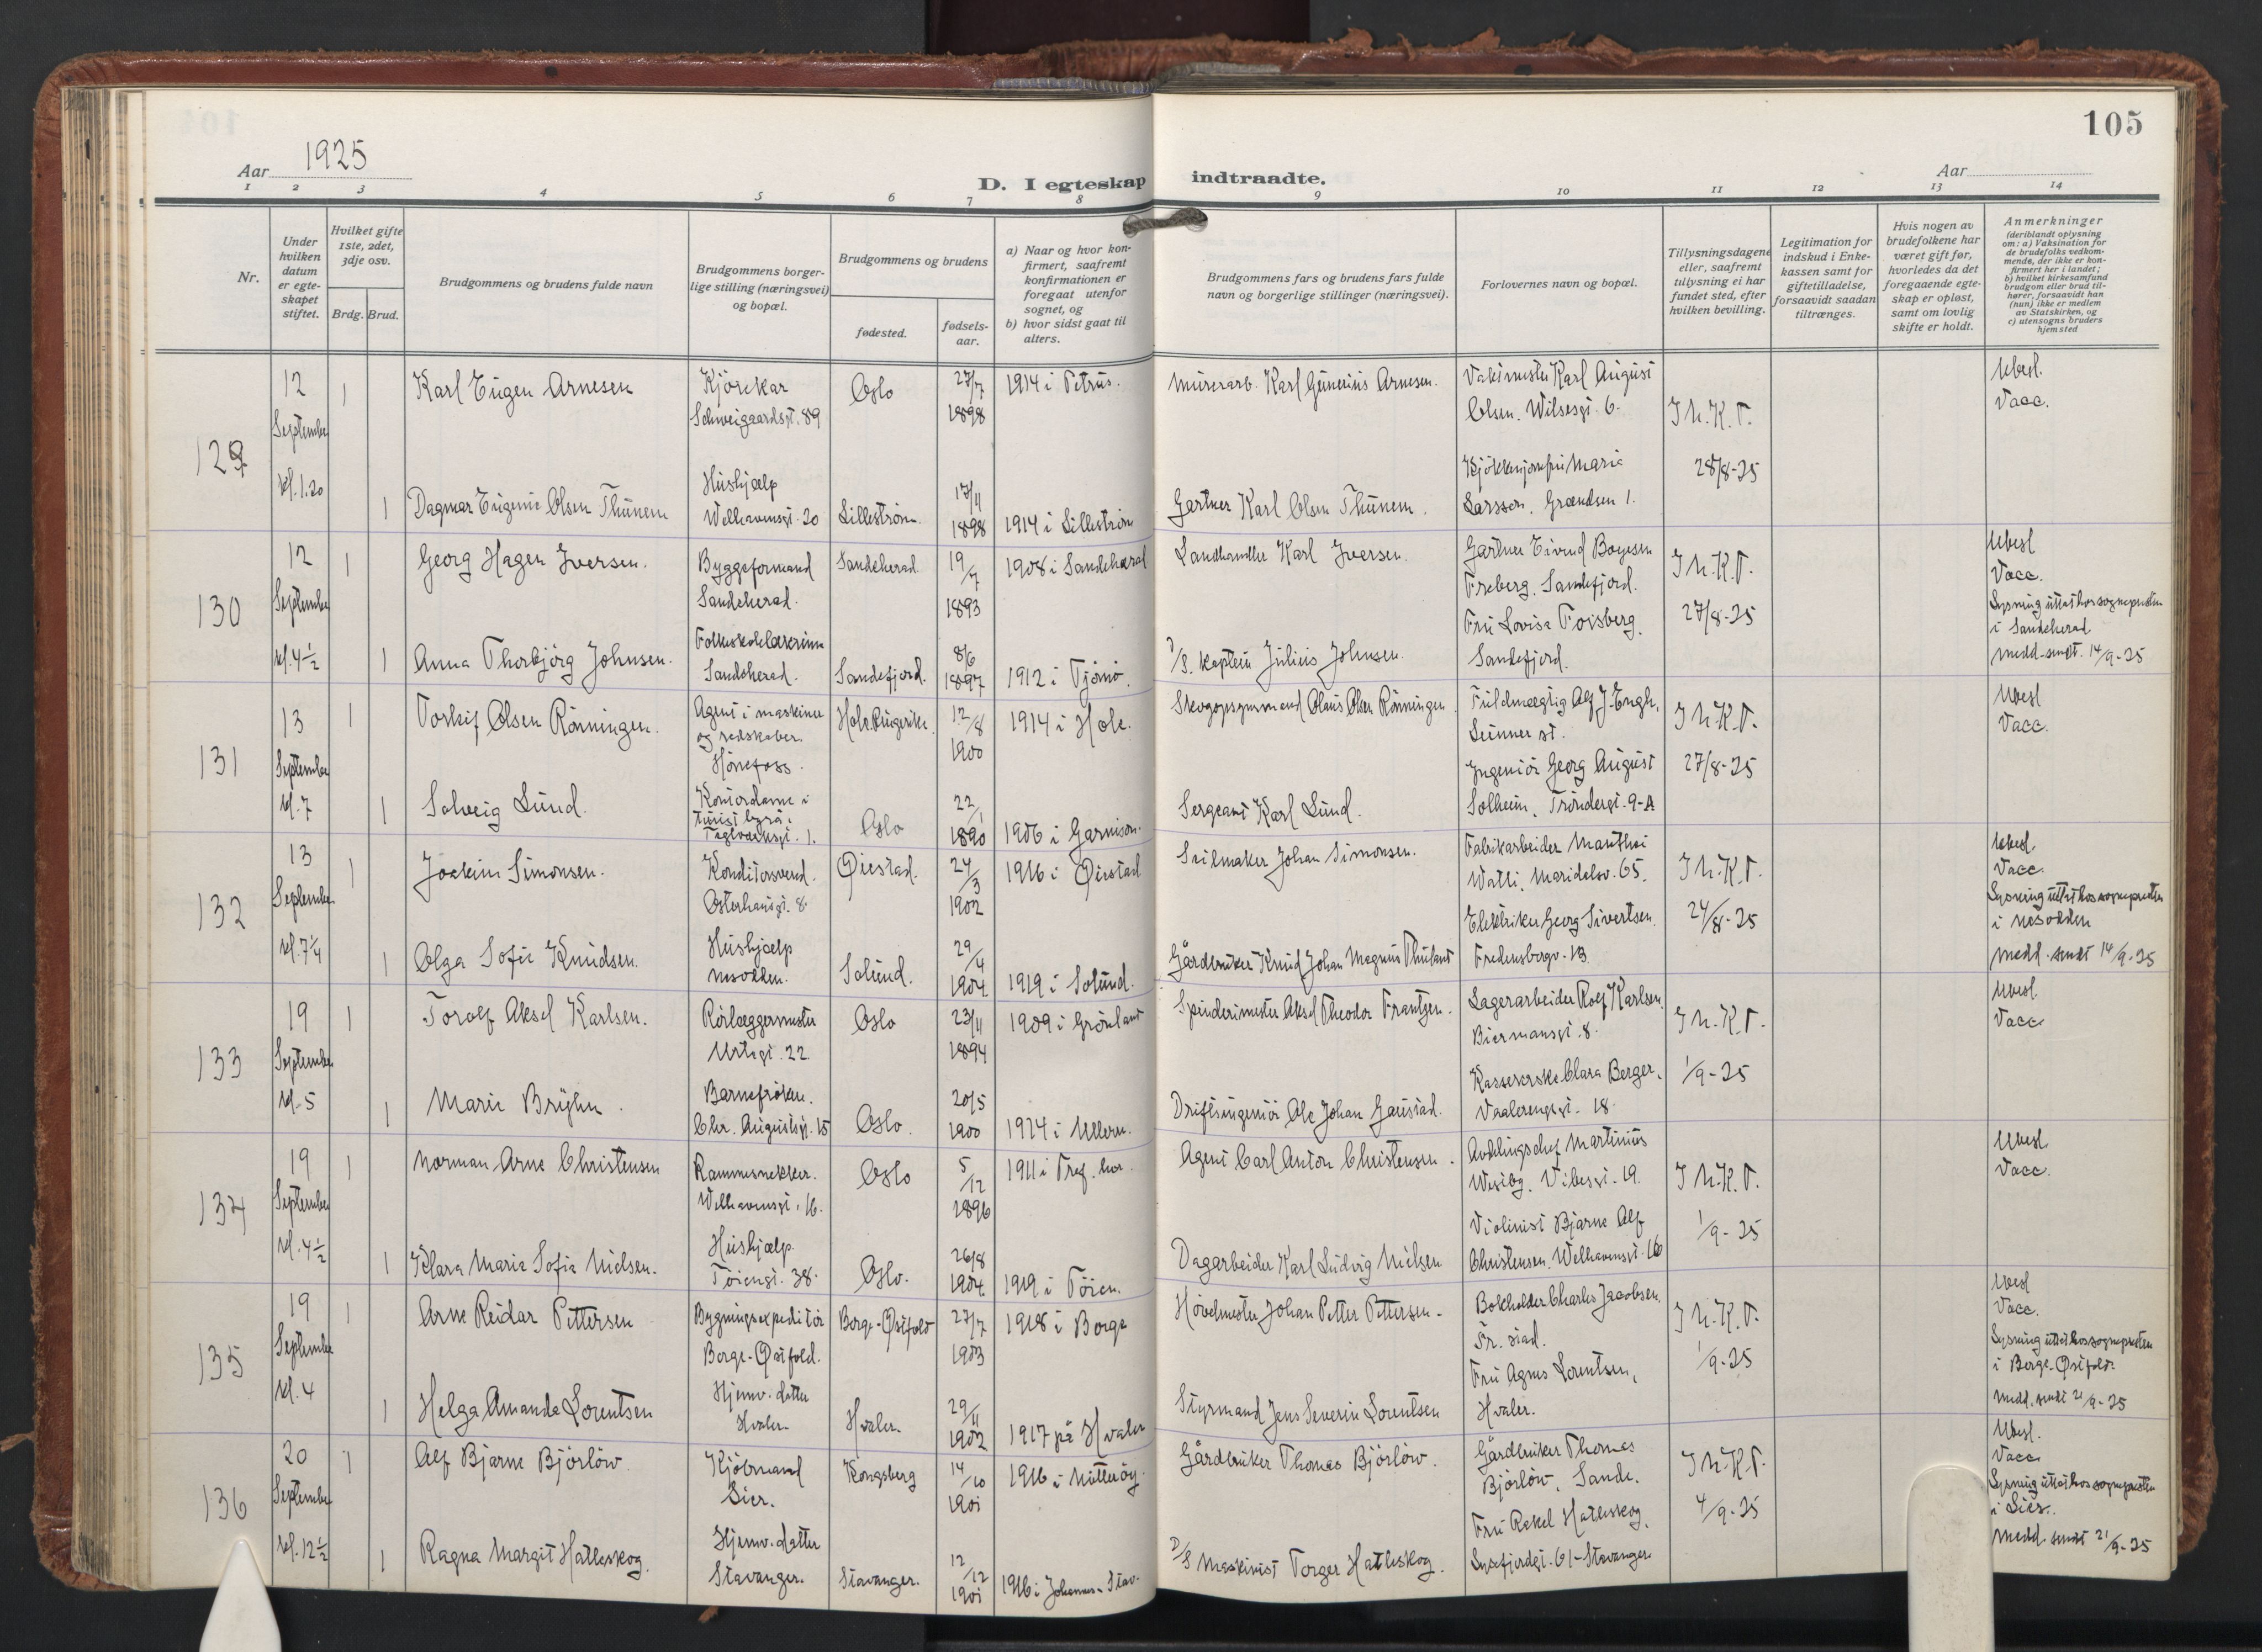 105
Aar 1925
D. I egteskap indtraadte.
Aar
1 2 3 4 5 6 7 8 9 10 11 12 13 14
Nr.
Under hvilken datum er egteskapet stiftet.
Hvilket gifte 1ste, 2det, 3dje osv.
Brdg. Brud.
Brudgommens og brudens fulde navn
Brudgommens borgerlige stilling (næringsvei) og bopæl.
Brudgommens og brudens
fødested.
fødselsaar.
a) Naar og hvor konfirmert, saafremt konfirmationen er foregaat utenfor sognet, og
b) hvor sidst gaat til alters.
Brudgommens fars og brudens fars fulde navn og borgerlige stillinger (næringsvei).
Forlovernes navn og bopæl.
Tillysningsdagene eller, saafremt tillysning ei har fundet sted, efter hvilken bevilling.
Legitimation for indskud i Enkekassen samt for giftetilladelse, forsaavidt saadan tiltrænges.
Hvis nogen av brudefolkene har været gift før, hvorledes da det foregaaende egteskap er opløst, samt om lovlig skifte er holdt.
Anmerkninger (deriblandt oplysning om: a) Vaksination for de brudefolks vedkommende, der ikke er konfirmert her i landet; b) hvilket kirkesamfund brudgom eller brud tilhører, forsaavidt han (hun) ikke er medlem av Statskirken, og c) utensogns bruders hjemsted
129
12 September kl. 1.20
1 Karl Eugen Arnesen
Kjörekar
Schweigaardsgt. 89
Oslo
27/7 1898
1914 i Petrus.
Murerarb. Karl Gunerius Arnesen.
Vaktmester Karl August
Olsen. Wilsesgt. 6.
I h. K. T.
Ubesl.
Vacc.
1 Dagmar Eugenie Olsen Thunem
Hushjælp
Welhavensgt. 20
Lilleström.
17/11 1898
1914 i Lilleström
Gartner Karl Olsen Thunem.
Kjökkenjomfru Marie
Larsson. Grændsen 1.
28/8-25
130
12 September kl. 4½
1 Georg Hagen Iversen.
Byggeformand
Sandeherad.
Sandeherad.
19/7 1893
1908 i Sandeherad
Landhandler Karl Iversen.
Gartner Eivind Boyesen
Freberg. Sandefjord.
I h. K. T.
Ubesl
Vacc.
Lysning uttat hos sogneprsten
i Sandeherad
medd. sendt. 14/9-25
1 Anna Thorbjörg Johnsen.
Folkeskolelærerinne
Sandeherad.
Sandefjord.
8/6 1897
1912 i Tjömö.
D/S. kaptein Julius Johnsen.
Fru Lovisa Foisberg.
Sandefjord.
27/8-25
131
13 September kl. 7
1 Torleif Olsen Rönningen.
Agent i maskiner
og redskaber.
Hönefoss.
Hole. Ringerike.
12/8 1900
1914 i Hole.
Skogopsynsmand Olaus Olsen Rönningen
Fuldmægtig Alf J. Engh.
Lunner st.
I h. K. T.
Ubesl
Vacc.
1 Solveig Lund.
Kontordame i
turist byrå.
Teglverksgt. 1.
Oslo
22/1 1890
1906 i Garnison.
Sergeant Karl Lund.
Ingeniör Georg August
Solheim. Tröndergt. 9-A
27/8-25
132
13 September kl. 7¼
1 Joakim Simonsen.
Konditorsvend.
Osterhausgt. 8
Øiestad.
24/3 1902
1916 i Øiestad
Seilmaker Johan Simonsen.
Fabrikarbeider Manthei
Watti. Maridalsv. 65.
I h. K. T.
Ubesl.
Vacc.
Lysning uttat hos sogneprsten
i Nesodden
medd. sendt 14/9-25
1 Olga Sofie Knudsen.
Hushjælp
Nesodden.
Solund.
29/4 1904
1919 i Solund.
Gårdbruker Knud Johan Magnus Thuland
Elektriker Georg Sivertsen.
Fredensbergv. 13
24/8-25
133
19 September kl. 5
1 Torolf Aksel Karlsen.
Rörlæggermester
Urtegt. 22.
Oslo
23/11 1894
1909 i Grönland
Spinderimester Aksel Theodor Frantzen.
Lagerarbeider Rolf Karlsen.
Biermansgt. 8.
I h. K. T.
Ubesl.
Vacc
1 Marie Bryhn.
Barnefröken.
Chr. Augustsgt. 15
Oslo.
20/5 1900
1924 i Ullern.
Driftsingeniör Ole Johan Gaustad.
Kassererske Clara Berger.
Vaalerenggt. 18.
1/9-25
134
19 September kl. 4½
1 Norman Arne Christensen
Rammesnekker.
Welhavensgt. 16.
Oslo
5/12 1896
1911 i Tref. her.
Agent Carl Anton Christensen.
Avdelingschef Martinius
Westby. Vibesgt. 19.
I h. K. T.
Ubesl.
Vacc.
1 Klara Marie Sofie Nielsen.
Hushjælp.
Töiengt. 38.
Oslo.
26/8 1904
1919 i Töien.
Dagarbeider Karl Ludvig Nielsen
Violinist Bjarne Alf
Christensen. Welhavensgt. 16
1/9-25
135
19 September kl. 4
1 Arne Reidar Pettersen
Bygningsexpeditör
Borge-Østfold.
Borge-Østfold
27/7 1903
1918 i Borge
Hövelmester Johan Petter Pettersen.
Bokholder Charles Jacobsen.
Fr. stad.
I h. K. T.
Ubesl
Vacc.
Lysning uttat hos sogneprsten
i Borge-Østfold
medd. sendt 21/9-25
1 Helga Amanda Lorentsen
Hjemv. datter
Hvaler.
Hvaler.
29/11 1902
1917 på Hvaler
Styrmand Jens Severin Lorentsen
Fru Agnes Lorentsen,
Hvaler.
1/9-25
136
20 September kl. 12½
1 Alf Bjarne Björlöw.
Kjöbmand
Lier.
Kongsberg
14/10 1901
1916 i Nötteröy.
Gårdbruker Thomas Björlöw.
Gårdbruker Thomas
Björlöw. Sande.
I h. K. T.
Ubesl.
Vacc
Lysning uttat hos sogneprsten
i Lier.
medd. sendt 21/9-25
1 Ragna Margit Hatleskog.
Hjemv. datter
Stavanger.
Stavanger.
12/12 1901
1916 i Johannes. Stav.
D/S Maskinist Torger Hatleskog.
Fru Rakel Hatleskog,
Lysefjordgt. 61-Stavanger
4/9-25